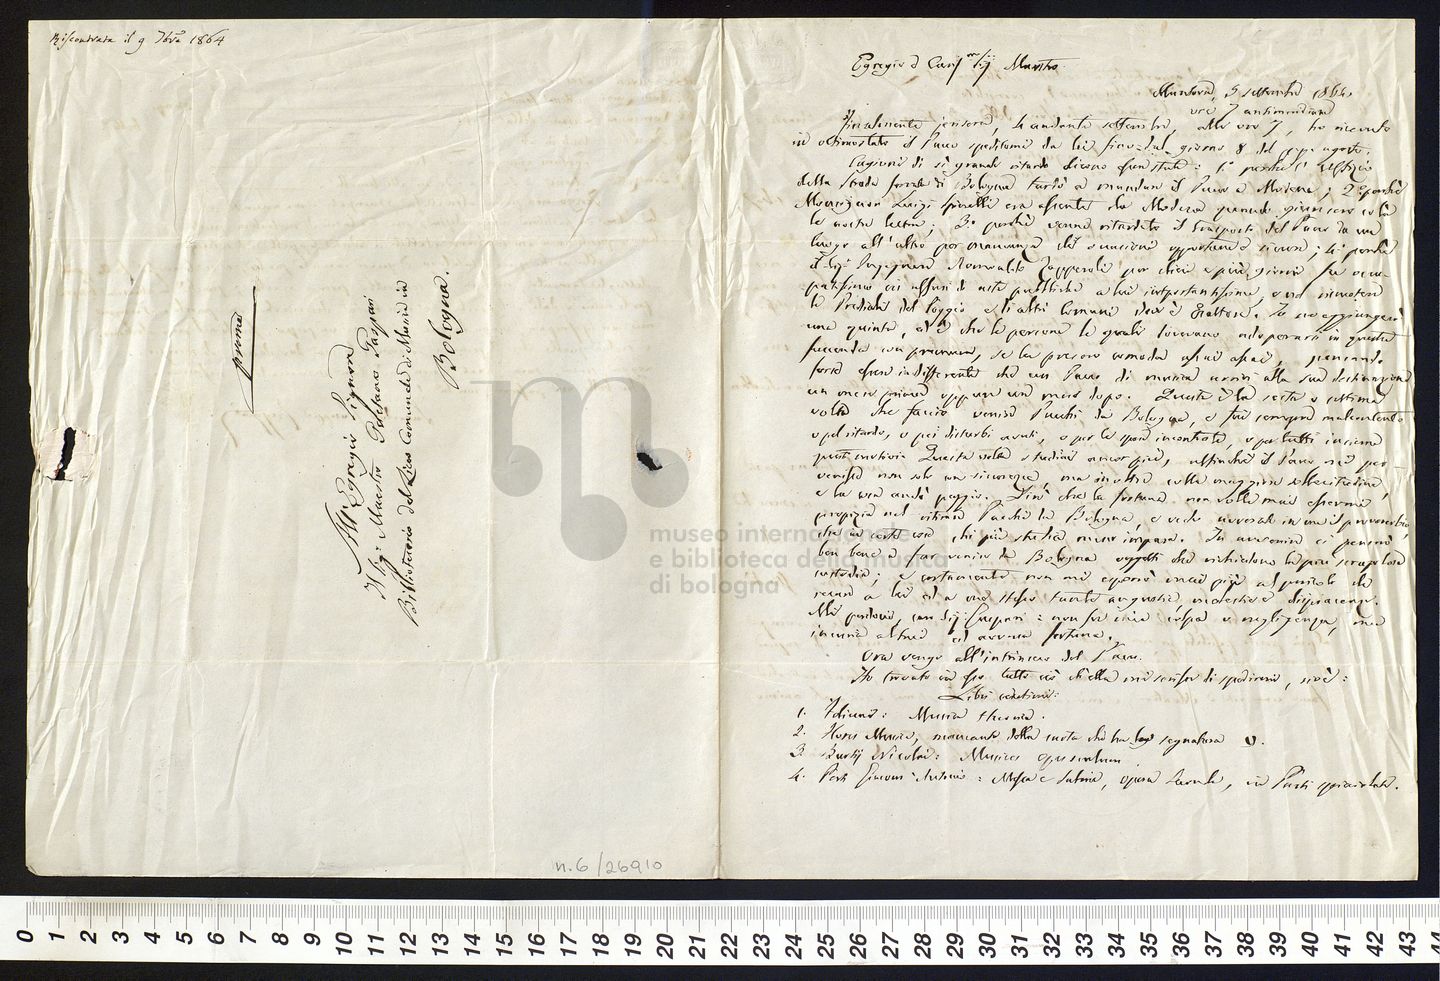 Riscontrata il 9 7bre 1864
All'Egregio Signore
Il Sig: Maestro Gaetano Gaspari
Bibliotecario del Liceo Comunale di Musica in
Bologna.
n. 6/26910
Egregio Sig Maestro
Mantova, 5 settembre 1864,
ore 7 antimeridiane
Finalmente jersera, 4 andante settembre, alle ore 7, ho ricevuto
il Pacco speditomi da lei fino dal giorno 8 del p.p. agosto.
Cagioni di sì grande ritardo dicono essere state: 1.° perchè l'Uffizio
della Strada ferrata di Bologna tardò a mandare il Pacco a Modena; 2.° perchè
Monsignor Luigi Spinelli era assente da Modena quando giunsero colà
le nostre lettere; 3.° perchè venne ritardato il trasporto del Pacco da un
luogo all'altro per mancanza di occasione opportuna e sicura; 4.° perchè
il Sig: Ingegnere Romualdo Zapparoli per dieci e più giorni fu occu-
patissimo in affari di
le Prediali del Poggio e di altri Comuni
una quinta, ed è che le persone le quali dovevano adoperarsi in questa
faccenda con premura, se la presero comoda assai assai, pensando
forse essere indifferente che un Pacco di musica arrivi alla sua destinazione
un mese prima oppure un mese dopo. Questa è la sesta o settima
volta che faccio venire Pacchi da Bologna, e fui sempre malcontento
o pel ritardo, o pei disturbi avuti, o per le spese incontrate, o per tutti insieme
questi motivi. Questa volta studiai ancor più, affinchè il Pacco mi per-
venisse non solo con sicurezza, ma inoltre colla maggiore sollecitudine,
e la cosa andò peggio. Dirò che la fortuna non volle mai essermi
propizia nel ritirare Pacchi da Bologna, e vedo avverato in me il proverbio,
che in certe cose chi più studia meno impara. In avvenire ci penserò
ben bene a far venire da Bologna oggetti che richiedono la più scrupolosa
custodia; e certamente non mi esporrò mai più al pericolo di
recare a lei ed a me stesso tante angustie, molestie e dispiacenze.
Mi perdoni, caro Sig: Gaspari: non fu mia colpa o negligenza, ma
incuria altrui ed avversa fortuna.
Ora vengo all'intrinseco del Pacco.
Ho trovato in esso tutto ciò ch'ella mi scrisse di spedirmi, cioè:
Libri
1. Musica
2. Musica, mancante della carta che ha segnatura V.
3. Burtij Nicolai: Musices opusculum.
4. Perti Giacomo Antonio: Messa e Salmi, Opera Seconda, in Parti